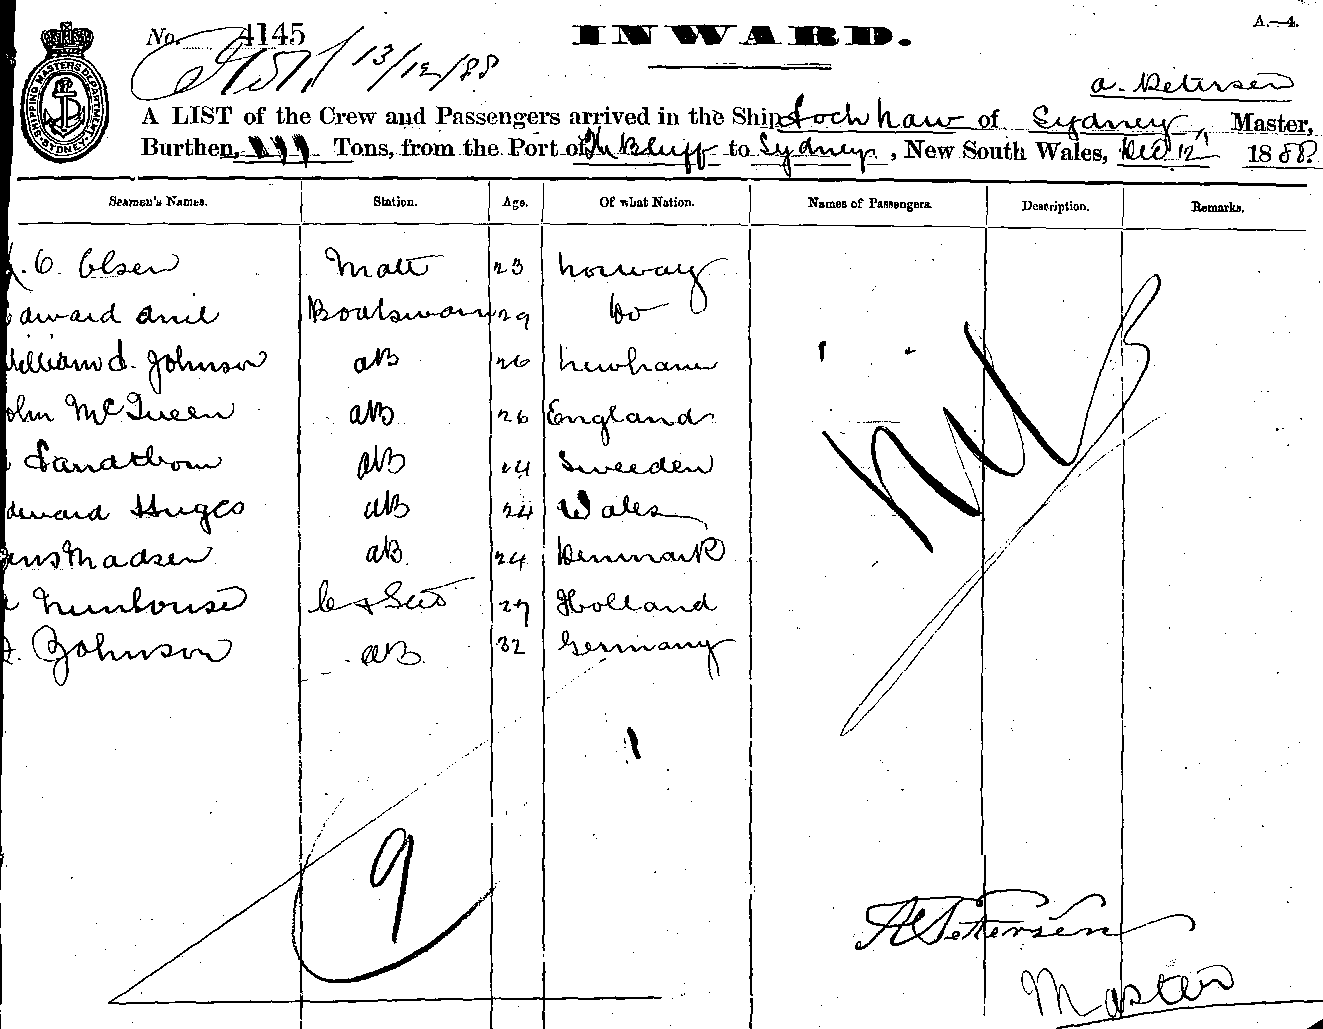 No. 4145
INWARD.
A.—4.
13/12/88
SHIPPING MASTERS DEPARTMENT SYDNEY
A. Petersen
A LIST of the Crew and Passengers arrived in the Ship Loch Naw of Sydney, Master,
Burthen, Tons, from the Port of The Bluff to Sydney, New South Wales, Dec 12 1888
Seamen's Names. Station. Age. Of what Nation. Names of Passengers. Description. Remarks.
C. Olsen Mate 23 Norway
dward Boatswain 29 Do
William S. Johnson AB 26 Newhaven
ohn McQueen AB 26 England
Sandstrom AB 24 Sweeden
dward Huges AB 24 Wales
ens Madsen AB 24 Denmark
C & Std 27 Holland
Johnson AB 32 Germany
Nil
9
A Petersen
Master